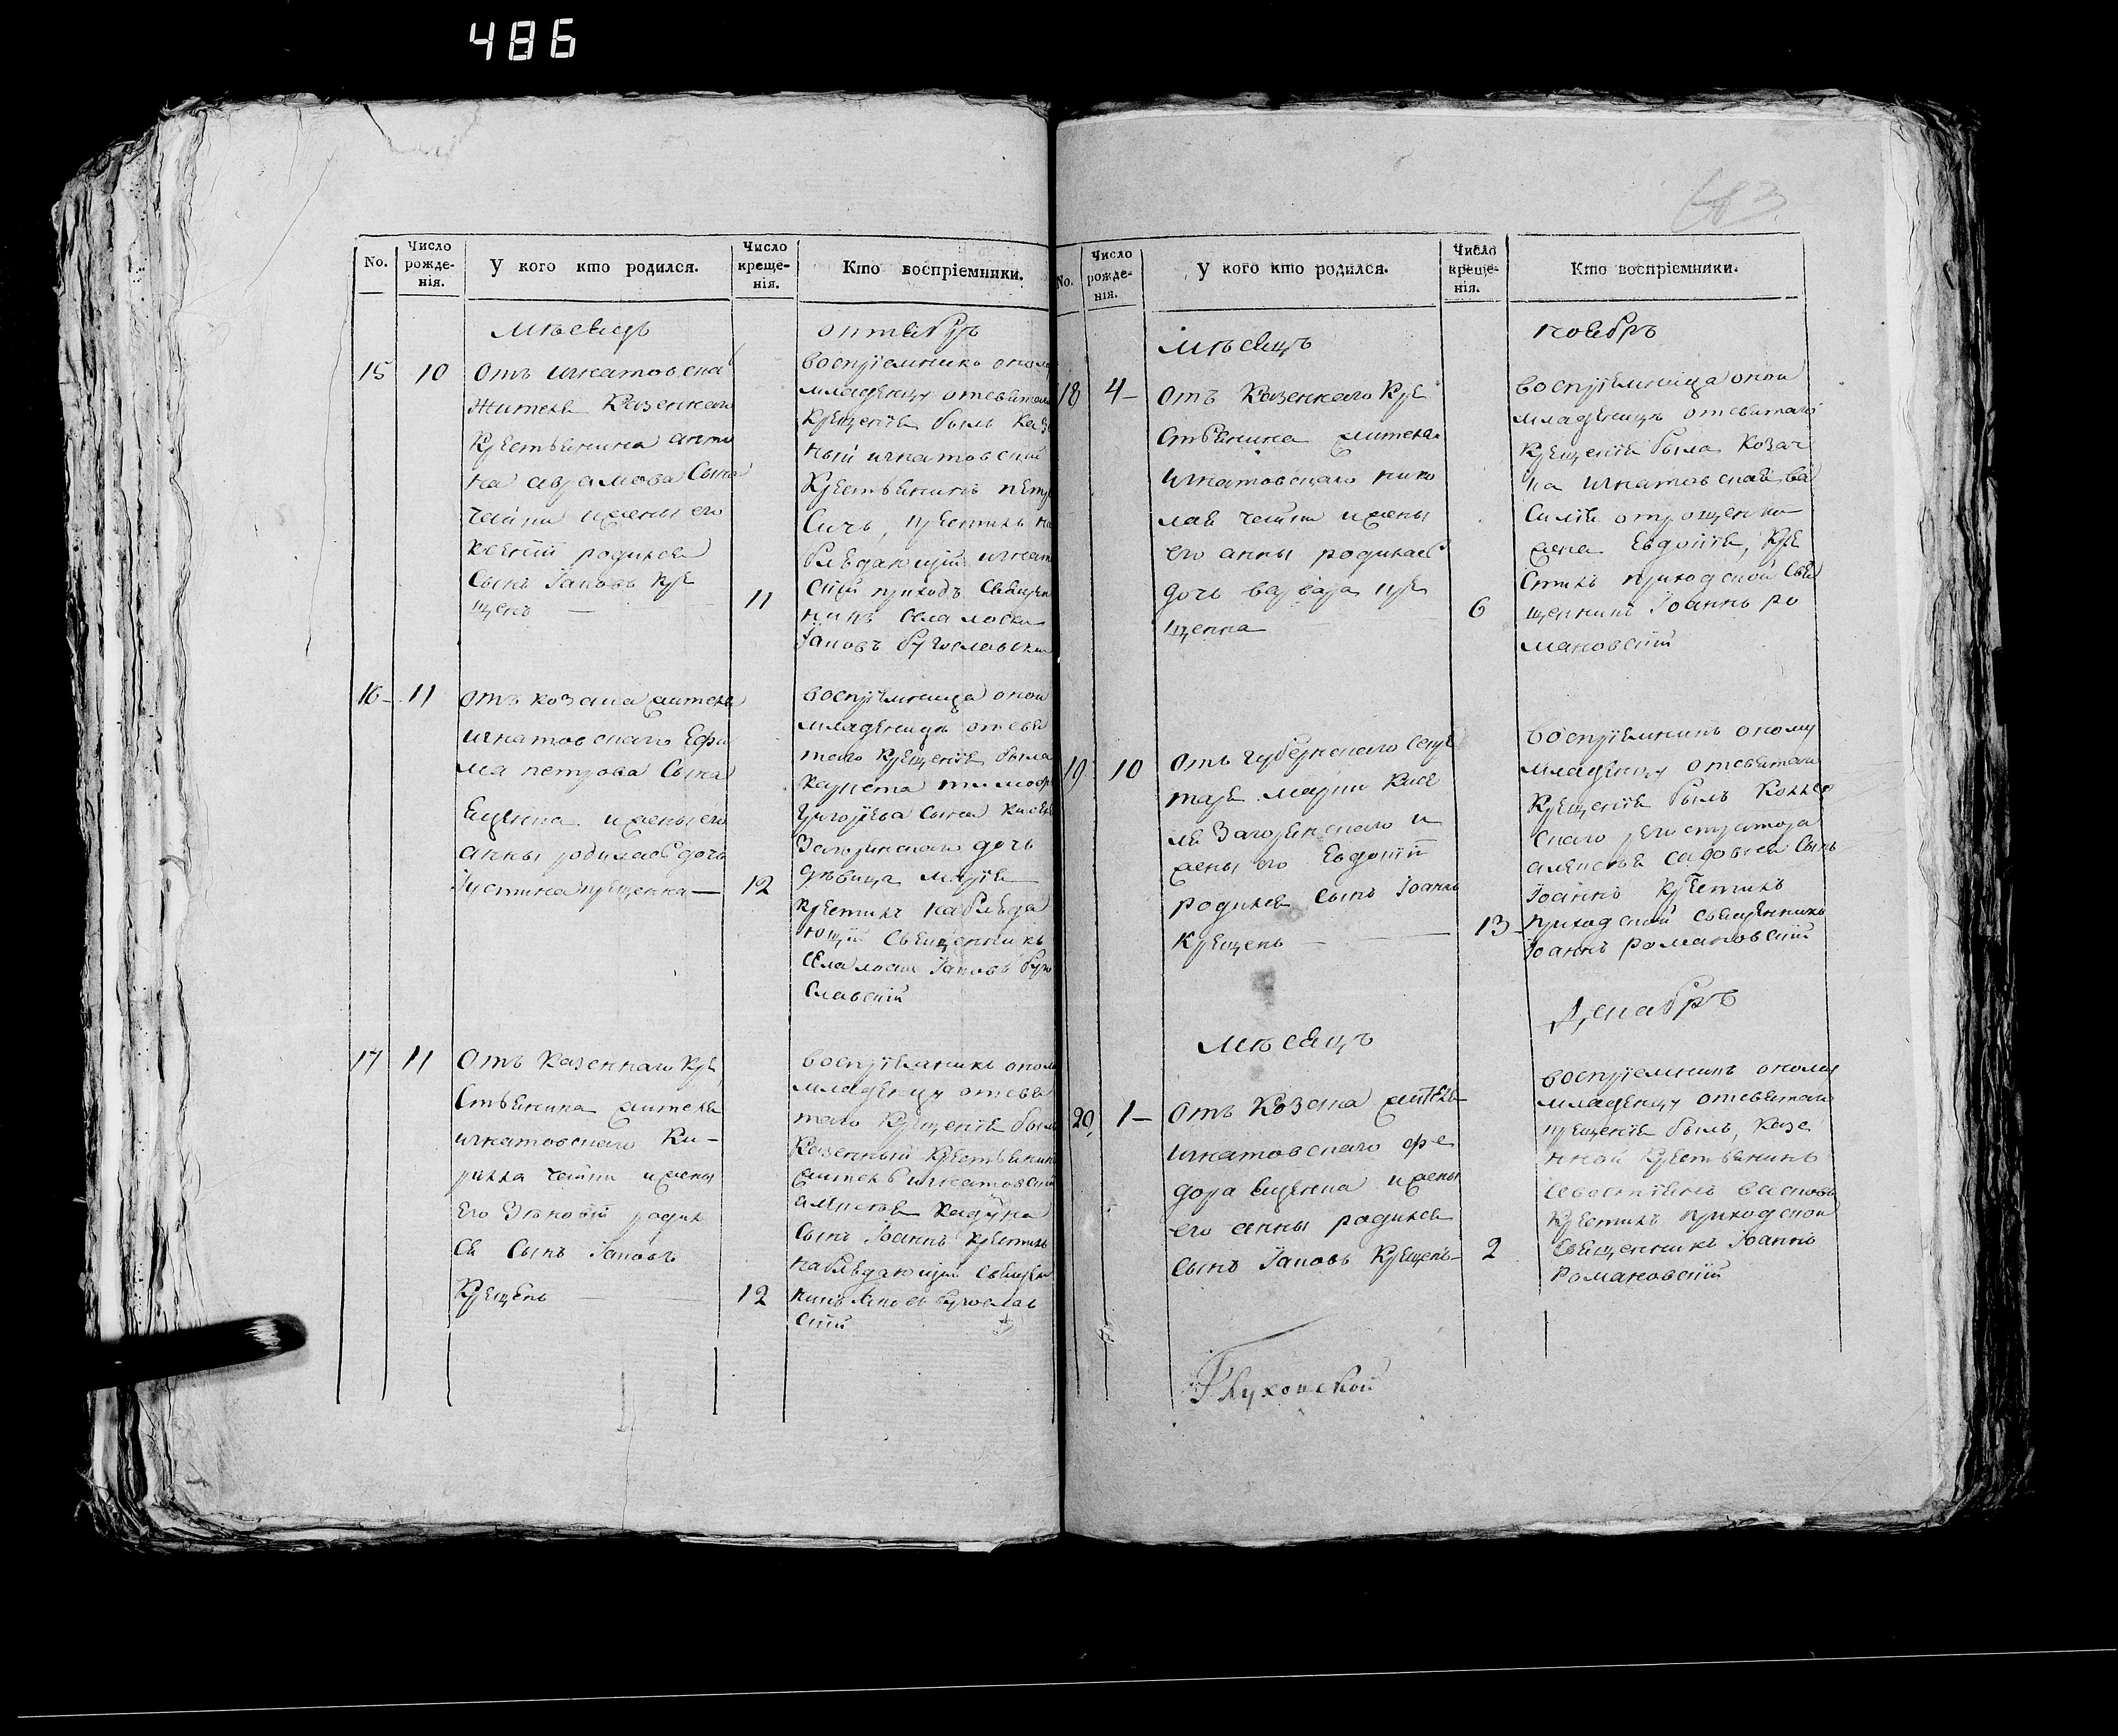 486
No.
Число рожде- нія.
У кого кто родился.
Число креще- нія.
Кто воспріемники.
мѣсяцъ
октябрь
15
10
Отъ игнатовска
жителя Казенного
Крестьянина анто
на аврамова Сына
чайки ижены его
Ксении родился
Сынъ Іаковъ кре
щенъ —
11
воспріемникъ оном
младенцу отсвятаго
крещенія былъ Казе
ный игнатовский
Крестьянинъ петръ
Сичъ, крестилъ на
блюдающий игнат
ский приходъ Священ
никъ села лоски
Іаковъ бугославски
16
11
отъ козака жителя
игнатовскаго Ефи
ма петрова Сына
Ещенка ижены его
анны родилась дочь
Іустина крещенна —
12
воспріемница оной
младеницѣ отсвя
таго крещенія была
Григорьева Сына
дочь
дѣвица марія
крестилъ наблюда
ющій Священникъ
села лоски Іаковъ Буго
славскій
17
11
Отъ Казеннаго Кре
Стьянина жителя
игнатовскаго Ки-
рилла чайки ижены
его Зѣновіи родил
ся Сынъ Іаковъ
Крещенъ —
12
воспріемникъ оном
младенцу отсвя
таго крещенія былъ
Казенный Крестьянинъ
житель игнатовскій
алексѣя
Сынъ Іоаннъ крестилъ
наблюдающій Священ
никъ Іаковъ Бугослав
скій
63
No.
Число рожде- нія.
У кого кто родился.
Число креще- нія.
Кто воспріемники.
Мѣсяцъ
ноябрь
18
4
Отъ Казенаго Кре
Стьянина жителя
игнатовскаго нико
лая чайки ижены
его анны родилась
дочь варвара кре
щенна
6
воспріемница оной
младеницѣ отсвятаго
крещенія была Козач
ка игнатовская ва
силія отрощенка
жена Евдокія, Кре
Стилъ приходской Свя
щенникъ Іоаннъ ро
мановскій
19
10
Отъ губернскаго Секре
таря
Загоринскаго и
жены его Евдокіи
родился Сынъ Іоаннъ
Крещенъ —
13
воспріемникъ оному
младенцу отсвятаго
Крещенія былъ Коллеж
скаго регистратора
алексѣя Сынъ
Іоаннъ Крестилъ
приходской Священникъ
Іоаннъ романовскій
мѣсяцъ
Декабрь
20
1
Отъ Козака жителя
игнатовскаго фе
дора Ещенка ижены
его анны родился
Сынъ Іаковъ Крещенъ
2
воспріемникъ оному
младенцу отсвятаго
крещенія былъ, Казе
нной Крестьянинъ
Крестилъ приходской
Священникъ Іоаннъ
Романовскій